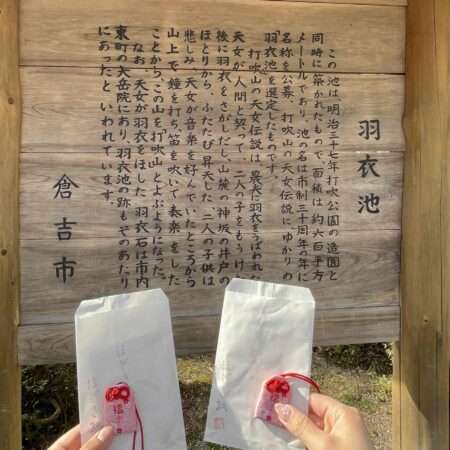 羽衣池
この池は、明治三十七年打吹公園の造園と
同時に築かれたもので、面積は、約六百平方
メートルであり、池の名は市制三十周年の年に
名称を公募、打吹山の天女伝説に、ゆかりの
「羽衣池」を選定したものです。
打吹山の天女伝説は、農夫に羽衣をうばわれた
天女が人間と契って、二人の子をもうけ
後に羽衣をさがしだし、山麓の神坂の井戸の
ほとりから、ふたたび昇天した二人の子供は
悲しみ、天女が音楽を好んでいたところから
山上で鐘を打ち、笛を吹いて奏楽をした
ことから、この山を「打吹山」とよぶようになった。
なお、天女が羽衣をほした羽衣石は市内
東町の大岳院にあり、羽衣池の跡もそのあたり
にあったといわれています。
倉吉市
福
福